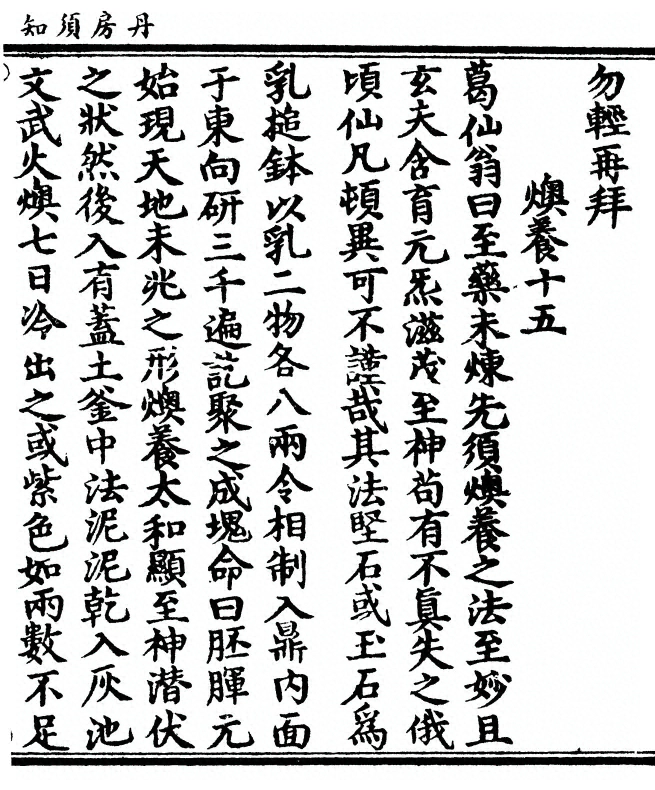 丹房須知
勿輕再拜
燠養十五
葛仙翁曰至藥未煉先須燠養之法至妙且
玄夫含育元炁滋茂至神苟有不眞失之俄
頃仙凡頓異可不謹哉其法堅石或玉石爲
乳搥鉢以乳二物各八兩令相制入鼎内面
于東向研三千遍訖聚之成塊命曰胚腪元
始現天地未兆之形燠養太和顯至神潜伏
之狀然後入有蓋土釜中法泥泥乾入灰池
文武火燠七日冷出之或紫色如兩數不足